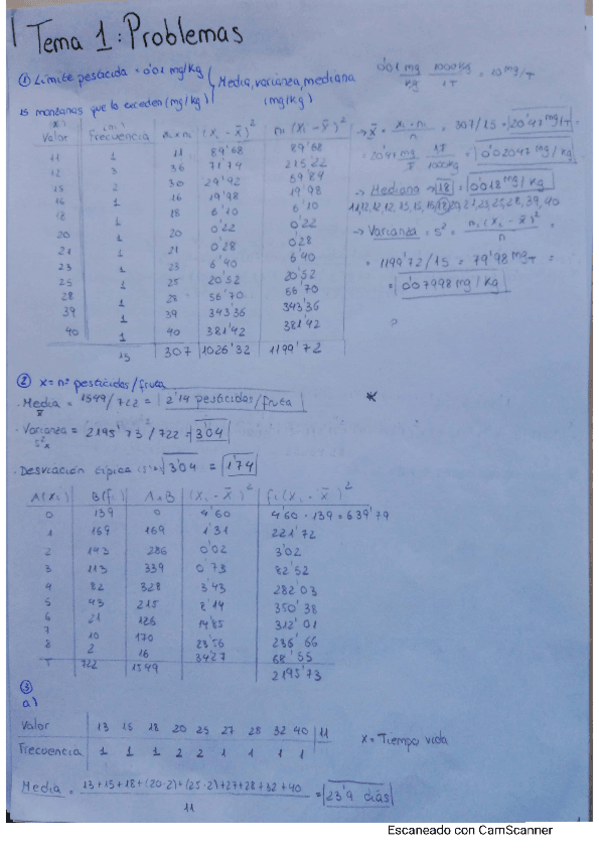 Tema 1: Problemas
① Límite pesticida = 0'01 mg/kg
15 manzanas que lo exceden (mg/kg)
Media, varianza, mediana
(mg/kg)
0'01 mg/kg 1000kg/1T = 10 mg/T
Valor Frecuencia xi·ni (xi - x̄)² ni (xi - x̄)²
11 1 11 89'68 89'68
12 3 36 71'74 215'22
15 2 30 29'92 59'84
16 1 16 19'98 19'98
18 1 18 6'10 6'10
20 1 20 0'22 0'22
21 1 21 0'28 0'28
23 1 23 6'40 6'40
25 1 25 20'52 20'52
28 1 28 56'70 56'70
39 1 39 343'36 343'36
40 1 40 381'42 381'42
15 307 1026'32 1199'72
→ x̄ = xi·ni/n = 307/15 = 20'47 mg/T =
= 20'47 mg/T 1T/1000kg = 0'02047 mg/kg
→ Mediana → 18 = 0'018 mg/kg
→ Varianza = s² = ni(xi - x̄)²/n =
= 1199'72/15 = 79'98 mg/T =
= 0'07998 mg/kg
② x = nº pesticidas/fruta
· Media = 1549/722 = 2'14 pesticidas/fruta
x̄
*
· Varianza = 2195'73/722 = 3'04
s²x
· Desviación típica (s) = √3'04 = 1'74
A(xi) B(fi) A×B (xi - x̄)² fi(xi - x̄)²
0 139 0 4'60 4'60·139 = 639'79
1 169 169 1'31 221'72
2 143 286 0'02 3'02
3 113 339 0'73 82'52
4 82 328 3'43 282'03
5 43 215 8'14 350'38
6 21 126 14'85 312'01
7 10 170 23'56 236'66
8 2 16 34'27 68'55
T 722 1549 2195'73
③
a)
Valor 13 15 18 20 25 27 28 32 40 11
Frecuencia 1 1 1 2 2 1 1 1 1
x = Tiempo vida
Media = 13+15+18+(20·2)+(25·2)+27+28+32+40/11 = 23'9 días
Escaneado con CamScanner